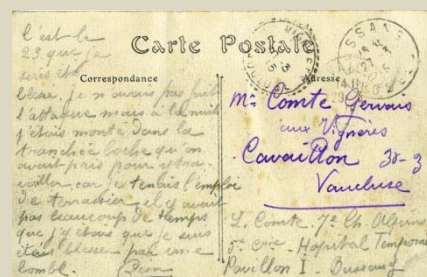 Carte Postale
Correspondance
Adresse
C'est le
23 que je
suis été
blesé, je n'avais pas fait
l'attaque mais à la nuit
j'étais monté dans la
tranchée boche qu'on
avait pris pour
car je tenais l'emploi
de terrassier, et y avait
pas beaucoup de temps
que j'y étais que je suis
étais blesser par une
bombe.
Mr Comte Gervais
aux Vignères
Cavaillon
Vaucluse
L. Comte 7e Ch. Alpins
Cnie Hopital Temporaire
Pavillon I Bussang